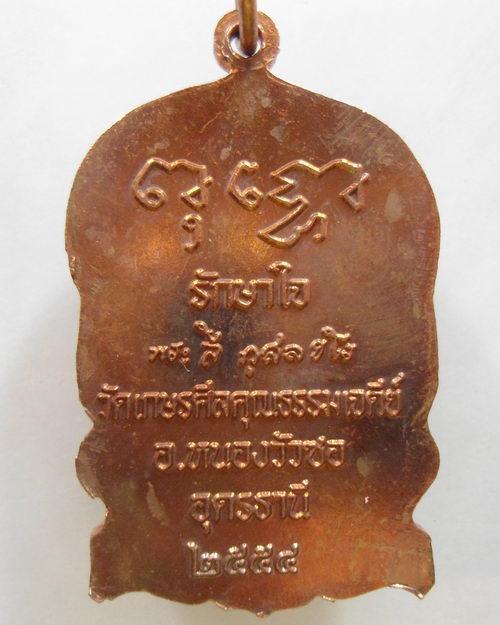 รักษาใจ
พระ ลี กุสลธโร
วัดเกษรศีลคุณธรรมเจดีย์
อ.หนองวัวซอ
อุดรธานี
๒๕๕๔